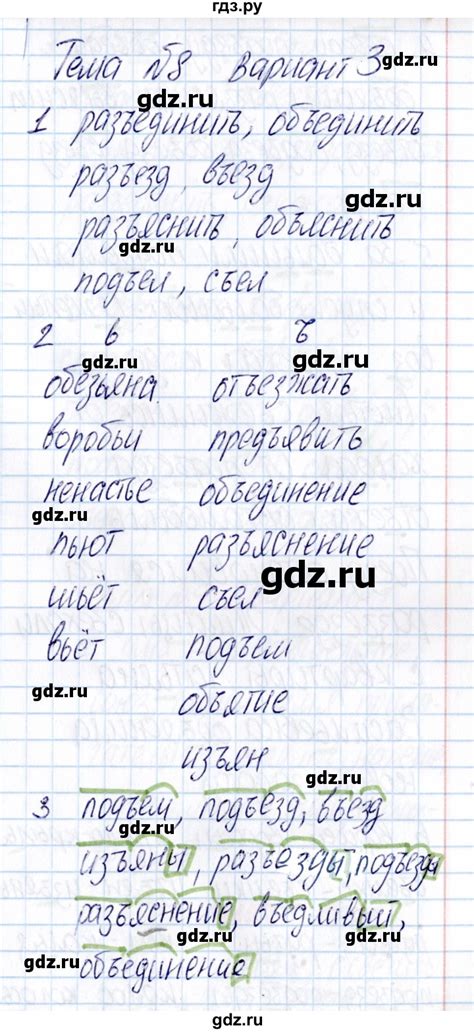 гдз.ру
Тема №8 вариант 3
gdz.ru
gdz.ru
1 разъединить, объединить
gdz.ru
разъезд, въезд
gdz.ru
разъяснить, объяснить
gdz.ru
подъел, съел
gdz.ru
2 ь ъ
gdz.ru
gdz.ru
обезьяна отъезжать
воробьи предъявить
gdz.ru
ненастье объединение
gdz.ru
пьют разъяснение
gdz.ru
шьёт съел
вьёт подъем
gdz.ru
объятие
изъян
gdz.ru
3 подъем, подъезд, въезд
gdz.ru
изъяны, разъезды, подъезда
gdz.ru
разъяснение, въедливый,
gdz.ru
gdz.ru
объединение
gdz.ru